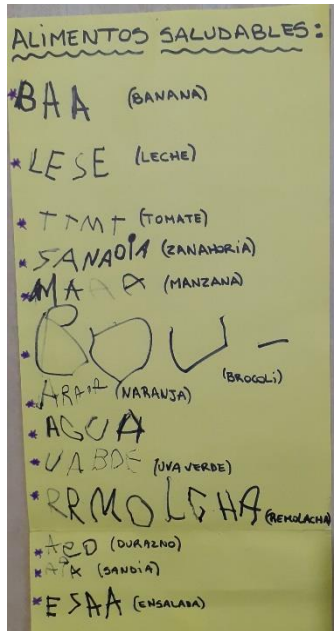 ALIMENTOS SALUDABLES:
* BAA (BANANA)
* LESE (LECHE)
* TTMT (TOMATE)
* SANADIA (ZANAHORIA)
* MAAA (MANZANA)
* BOU- (BROCOLI)
* ARAJA (NARANJA)
* AGUA
* UABDE (UVA VERDE)
* RRMOLCHA (REMOLACHA)
* AEO (DURAZNO)
* AIA (SANDÍA)
* ESAA (ENSALADA)